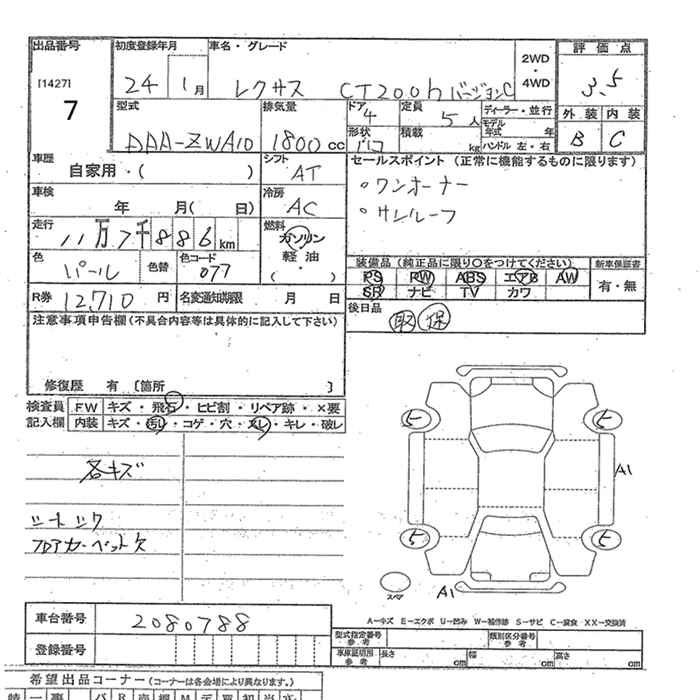 出品番号 初度登録年月 車名・グレード 2WD・4WD 評価点
[1427] 7 24 1月 レクサス CT200h バージョンC 3.5
型式 排気量 ドア 4 定員 5人 ディーラー・並行 外装 内装
DAA-ZWA10 1800cc 形状 積載 kg モデル年式 年 ハンドル 左・右 B C
車歴 自家用・( ) シフト AT セールスポイント(正常に機能するものに限ります)
車検 年 月( 日) 冷房 AC ○ワンオーナー
○サンルーフ
走行 11万7千886km 燃料 ガソリン 軽油・( )
色 パール 色替 色コード 077 装備品(純正品に限り○をつけてください) 新車保証書
PS PW ABS エアB AW 有・無
SR ナビ TV カワ
R券 12,710円 名変通知期限 月 日 後日品 取 保
注意事項申告欄(不具合内容等は具体的に記入して下さい)
修復歴 有 〔箇所 〕
検査員 FW キズ・飛石・ヒビ割・リペア跡・×要
記入欄 内装 キズ・汚れ・コゲ・穴・スレ・キレ・破レ
各キズ
シートシワ
フロアカーペット欠
5 5
A1
5 5
スペア A1
A－キズ E－エクボ U－凹み W－補修跡 S－サビ C－腐食 XX－交換済
車台番号 2080788 型式指定番号 参考 類別区分番号 参考
登録番号 車庫証明用 参考 長さ cm 幅 cm 高さ cm
希望出品コーナー(コーナーは各会場により異なります。)